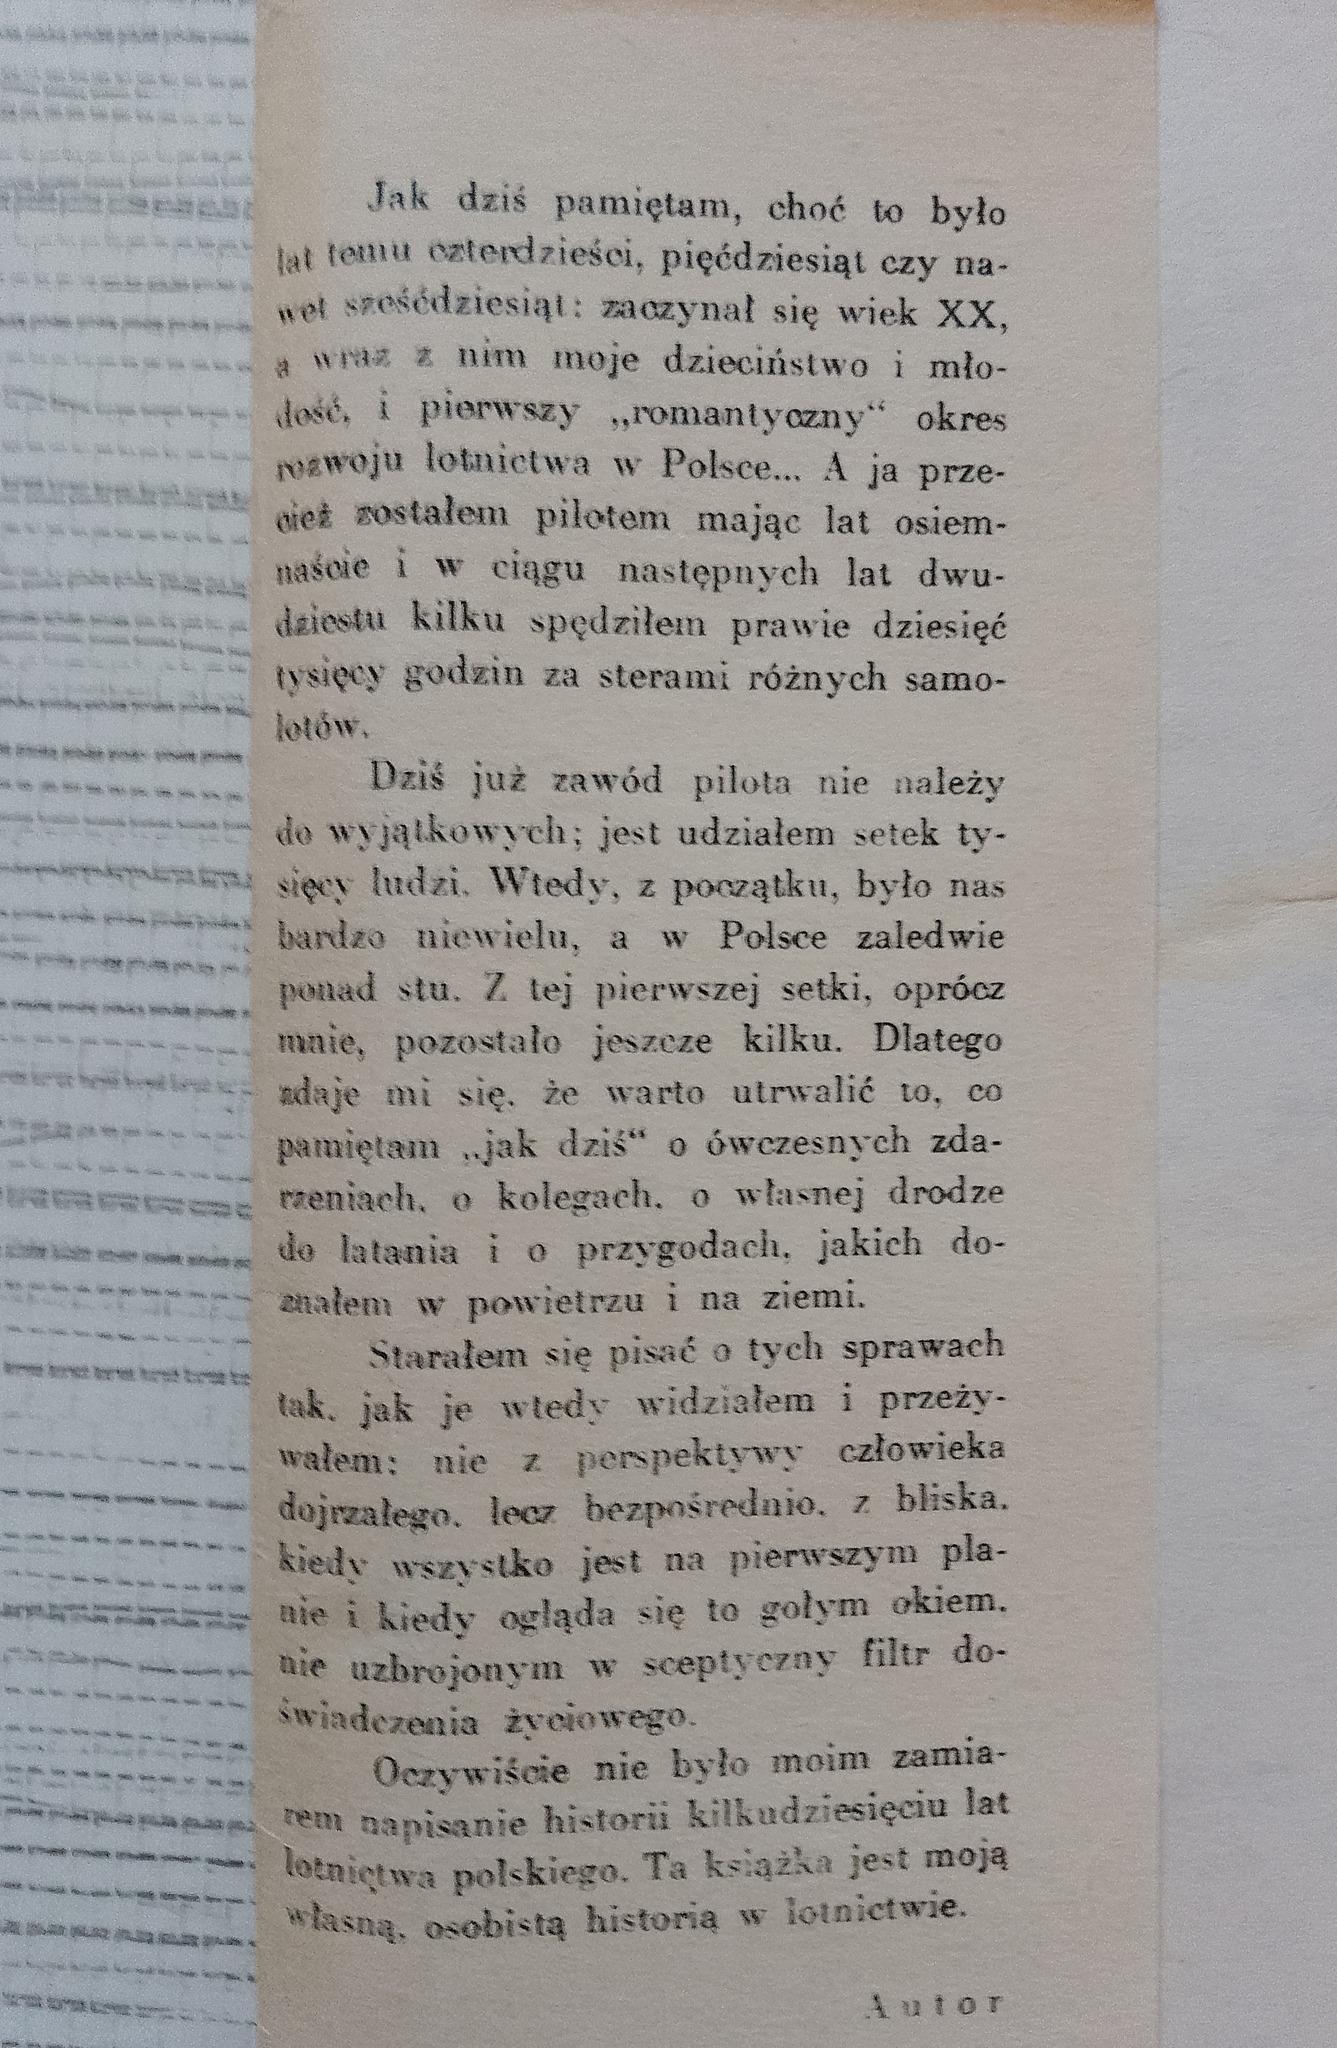 Jak dziś pamiętam, choć to było
lat temu czterdzieści, pięćdziesiąt czy na-
wet sześćdziesiąt: zaczynał się wiek XX,
a wraz z nim moje dzieciństwo i mło-
dość, i pierwszy „romantyczny“ okres
rozwoju lotnictwa w Polsce... A ja prze-
cież zostałem pilotem mając lat osiem-
naście i w ciągu następnych lat dwu-
dziestu kilku spędziłem prawie dziesięć
tysięcy godzin za sterami różnych samo-
lotów.
Dziś już zawód pilota nie należy
do wyjątkowych; jest udziałem setek ty-
sięcy ludzi. Wtedy, z początku, było nas
bardzo niewielu, a w Polsce zaledwie
ponad stu. Z tej pierwszej setki, oprócz
mnie, pozostało jeszcze kilku. Dlatego
zdaje mi się, że warto utrwalić to, co
pamiętam „jak dziś“ o ówczesnych zda-
rzeniach, o kolegach, o własnej drodze
do latania i o przygodach, jakich do-
znałem w powietrzu i na ziemi.
Starałem się pisać o tych sprawach
tak, jak je wtedy widziałem i przeży-
wałem; nie z perspektywy człowieka
dojrzałego, lecz bezpośrednio, z bliska,
kiedy wszystko jest na pierwszym pla-
nie i kiedy ogląda się to gołym okiem,
nie uzbrojonym w sceptyczny filtr do-
świadczenia życiowego.
Oczywiście nie było moim zamia-
rem napisanie historii kilkudziesięciu lat
lotnictwa polskiego. Ta książka jest moją
własną, osobistą historią w lotnictwie.
Autor